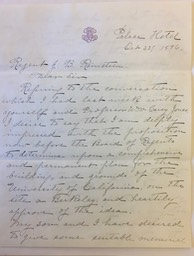 Palace Hotel
Oct 22d, 1896.
Regent J. B. Reinstein
Dear Sir
Refering to the conversation
which I had last week with
yourself and Professor
I desire to say that I am deeply
impressed with the proposition
now before the Board of Regents
to determine upon a comprehensive
and permanent plan for the
buildings and grounds of the
University of California on the
site at Berkeley and heartily
approve of the idea.
My son and I have desired
to give some suitable memorial